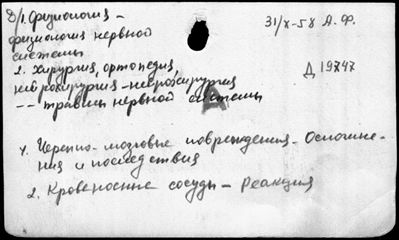 8/1. Физиология -
31/X-58 А.Ф.
физиология нервной
системы
2. Хирургия, ортопедия,
Д 19747
нейрохирургия - нейрохирургия
-- травмы нервной системы
А
1. Черепно-мозговые повреждения - Осложне-
ния и последствия
2. Кровеносные сосуды - Реакция